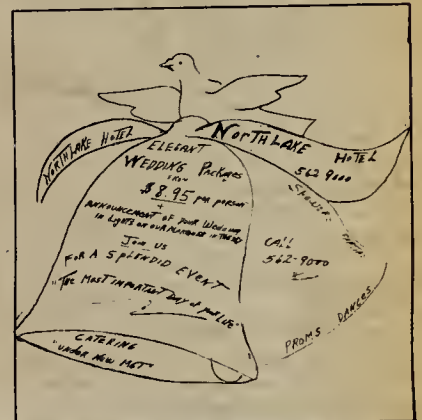 NORTHLAKE HOTEL
NORTHLAKE HOTEL
562 9000
ELEGANT
WEDDING Packages
FROM
$8.95 PER PERSON
+
ANNOUNCEMENT OF YOUR WEDDING
IN LIGHTS ON OUR MARQUEE IN THE SKY
JOIN US
FOR A SPLENDID EVENT
"THE MOST IMPORTANT DAY OF YOUR LIFE"
CALL
562-9000
SHOWERS
PROMS DANCES
CATERING
"UNDER NEW MGT"